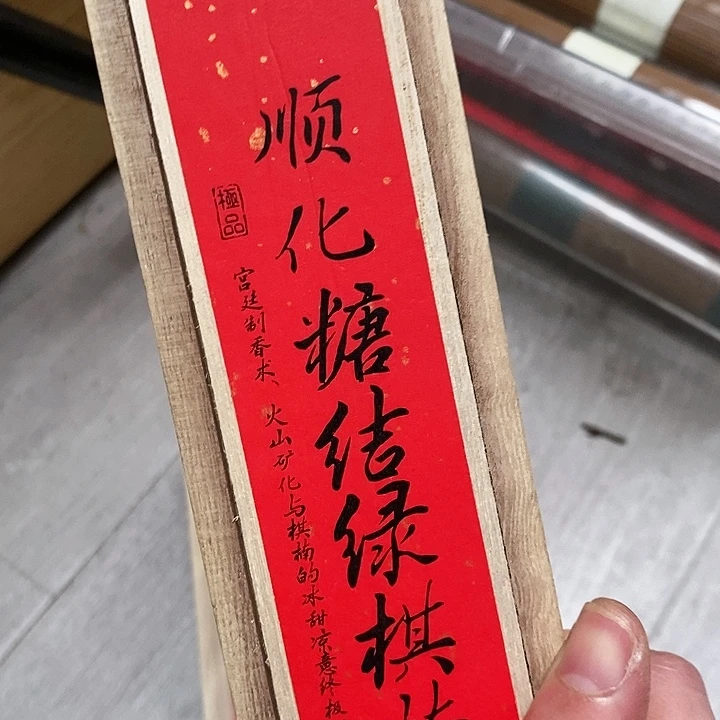 顺化糖结绿棋
極品
宫廷制香术、火山矿化与棋楠的冰甜凉意终极